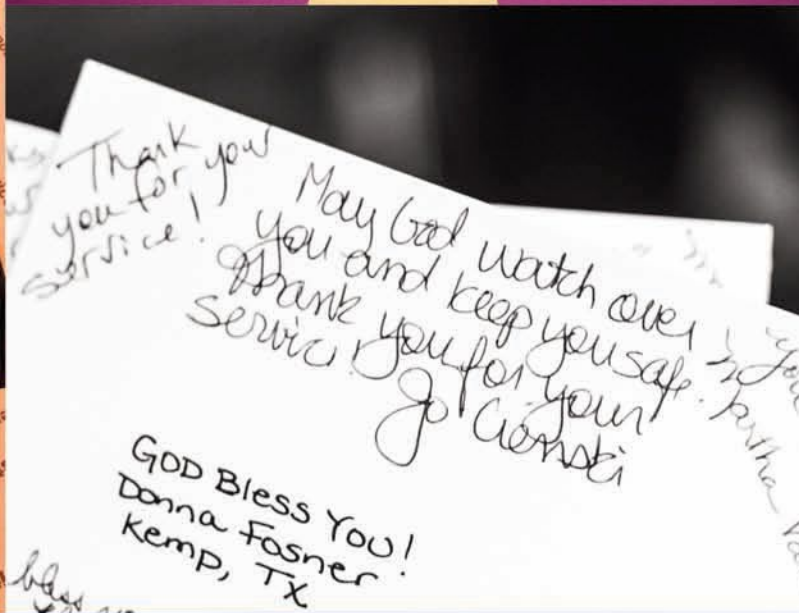 Thank you
you for
service!
May God watch over
you and keep you safe.
Thank you for your
servic!
Jo
GOD Bless You!
Donna Fosner
Kemp, TX
bless